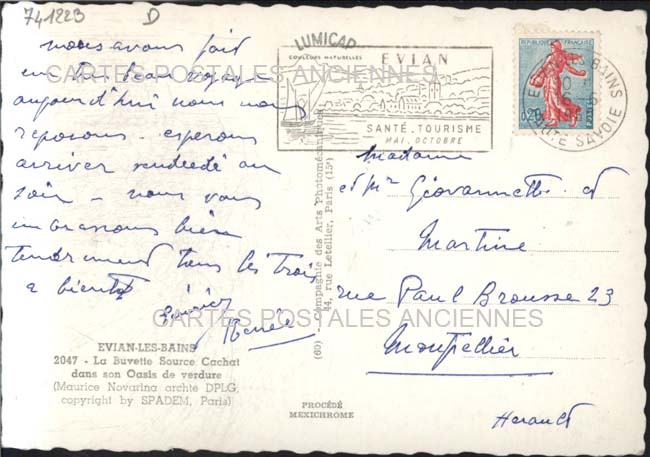 741223 D
LUMICAP
COULEURS NATURELLES
EVIAN
SANTÉ. TOURISME
MAI. OCTOBRE
REPUBLIQUE FRANÇAISE
0,20
POSTES
EVIAN LES BAINS
HTE SAVOIE
nous avons fait
un très beau voyage
aujourd'hui nous nous
reposons. esperons
arriver vendredi au
soir - nous vous
embrassons bien
tendrement tous les trois
a bientôt
Renée
CARTES POSTALES ANCIENNES
CARTES POSTALES ANCIENNES
Madame
et Mr Giovannetti et
Martine
rue Paul Brousse 23
Montpellier
Herault
(60) - Compagnie des Arts Photomécaniques
44, rue Letellier, Paris (15e)
EVIAN-LES-BAINS
2047 - La Buvette Source Cachat
dans son Oasis de verdure
(Maurice Novarina archte DPLG,
copyright by SPADEM, Paris)
PROCÉDÉ
MEXICHROME